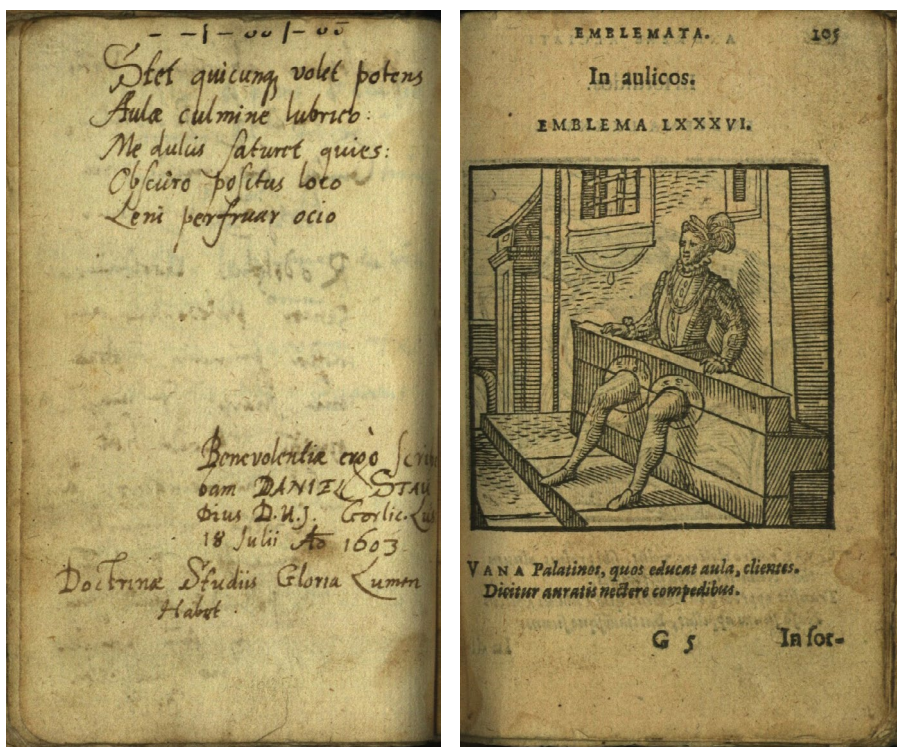 – –|– ᴗᴗ|– ᴗᴗ
Stet quicunq volet potens
Aulæ culmine lubrico:
Me dulcis saturet quies:
Obscuro positus loco
Leni perfruar ocio
Benevolentiæ ergò
bam DANIEL
D.U.J. Gorlic.
18 Julii Aõ 1603
Doctrinæ Studiis Gloria Lumen
Habet.
EMBLEMATA. 105
In aulicos.
EMBLEMA LXXXVI.
VANA Palatinos, quos educat aula, clientes.
Dicitur auratis nectere compedibus.
G 5 In for-